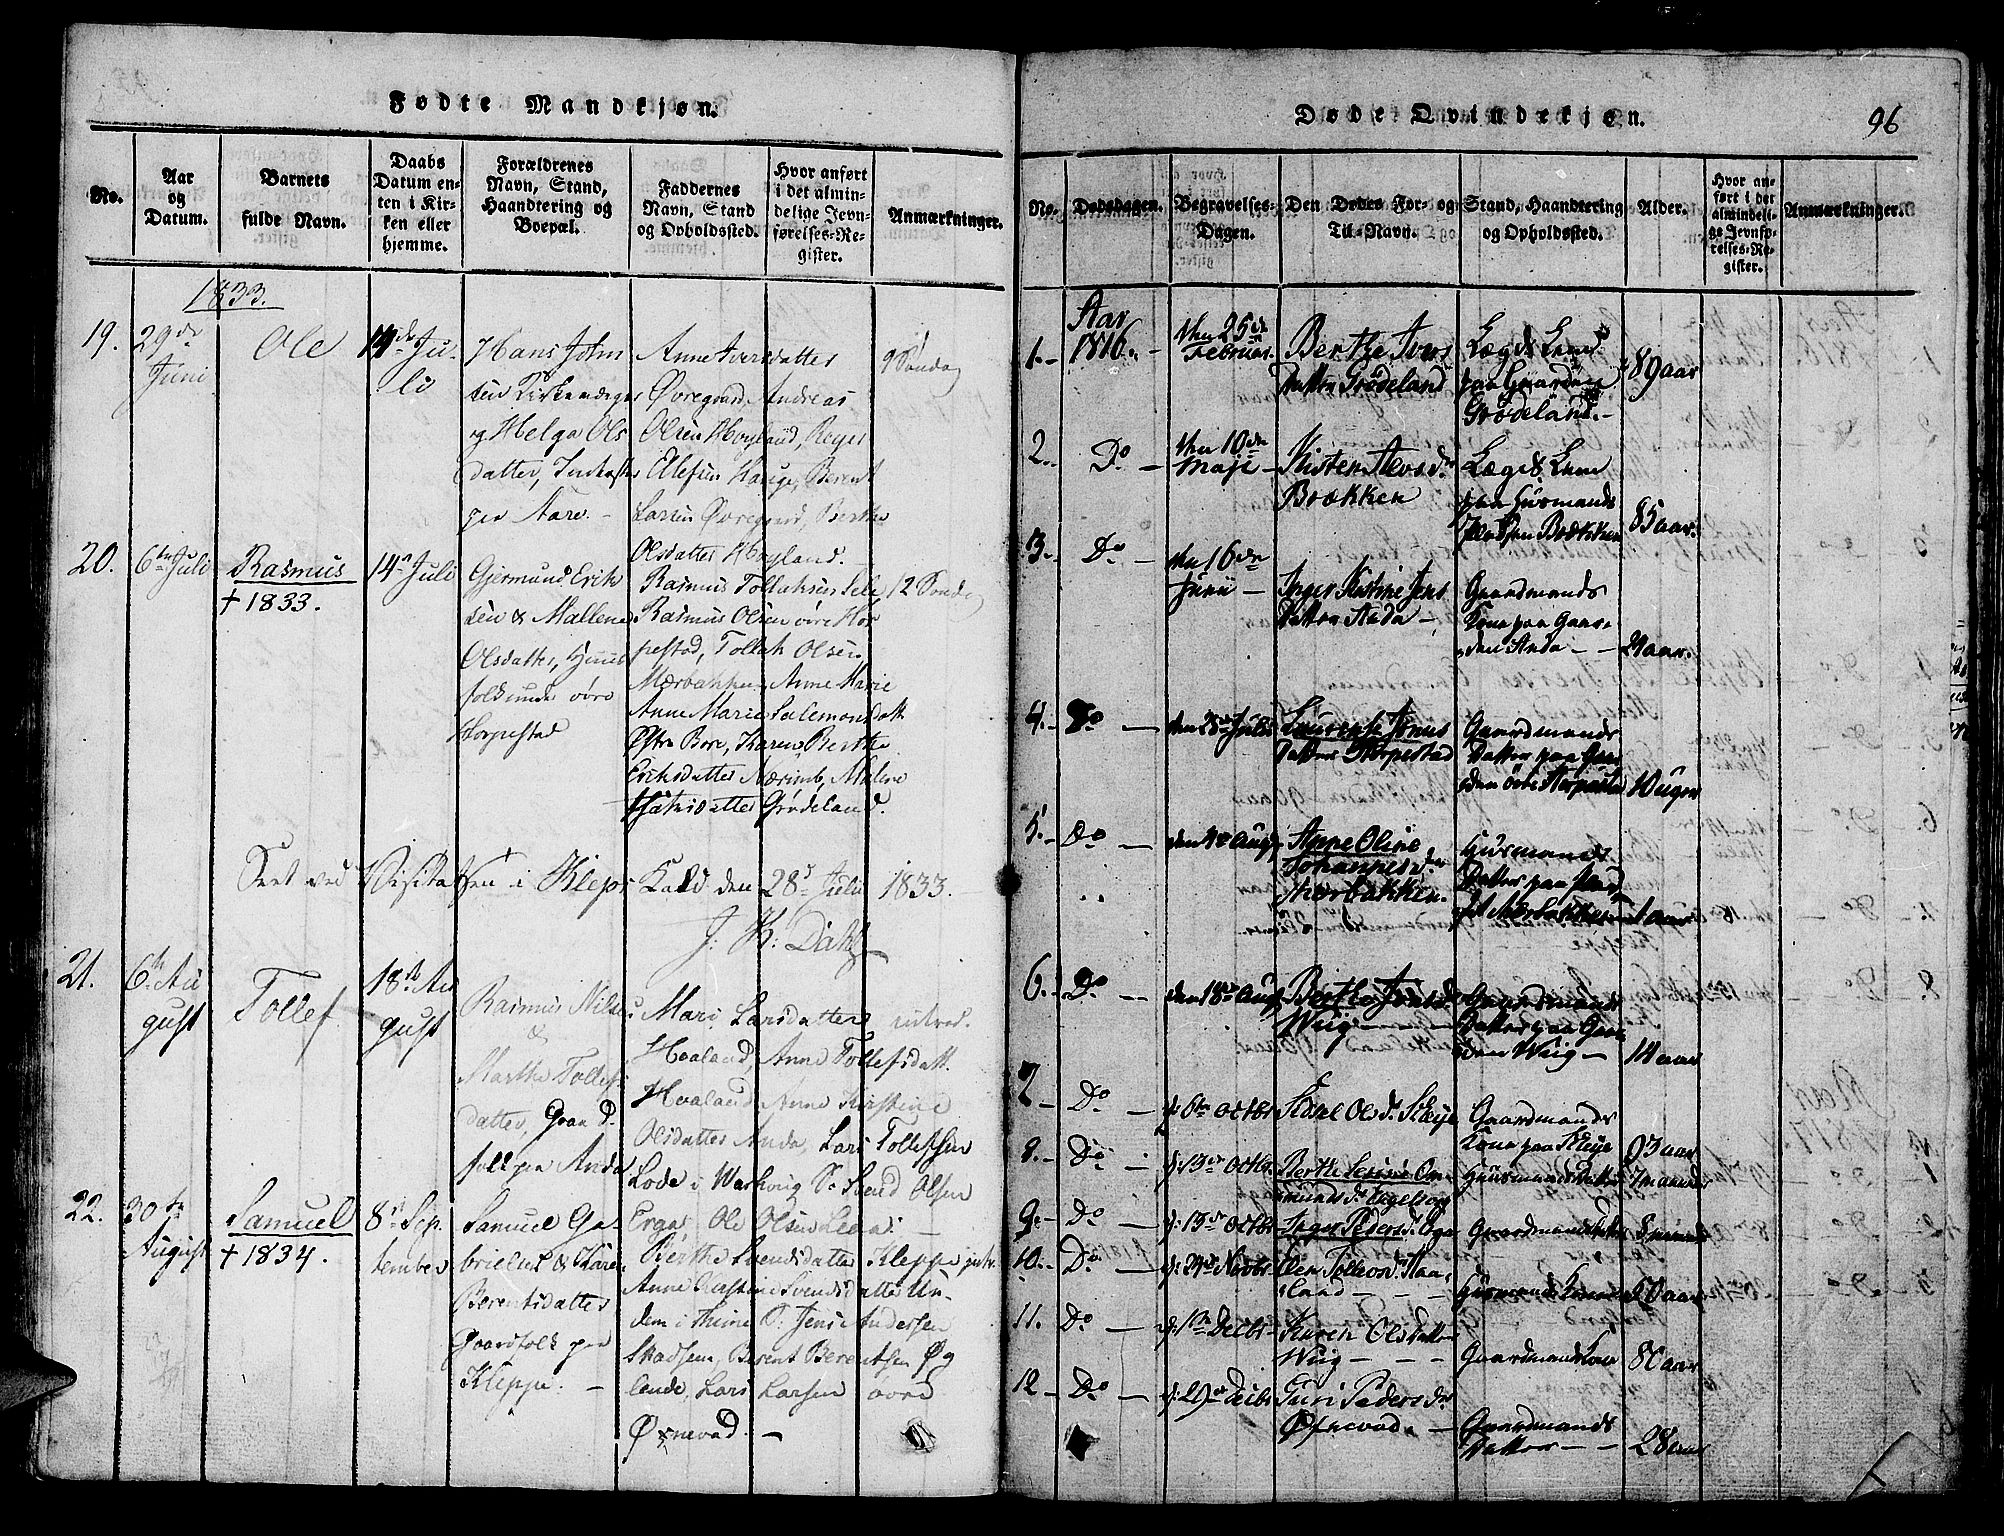 Fødte Mandkjøn.
No.
Aar og Datum.
Barnets fulde Navn.
Daabs Datum enten i Kirken eller hjemme.
Forældrenes Navn, Stand, Haandtering og Boepæl.
Faddernes Navn, Stand og Opholdssted.
Hvor anført i det almindelige Jevnførelses-Register.
Anmærkninger.
1833.
19.
29de
Juni
Ole
14de Ju-
li
Hans John
sen Kirkesanger
og Helga Ols
datter,
paa Aare. -
Anne Iversdatter
Øvregaard, Andreas
Olsen Hoyland, Reyer
Olefsen Hauge, Berent
Larsen Øvregaard, Berthe
Olsdatter Hoyland.
9 Søndag
20.
6te Juli
Rasmus
+ 1833.
14de Juli
Gjermund Erik
sen & Mallene
Olsdatter, Huus
folk under øvre
Horpestad
Rasmus Tollaksen Sele
Rasmus Olsen øvre Hor
pestad, Tollak Olsen
Mærbakken, Anne Marie
Anne Marie Salemonsdatt
Østre Bore, Karen Berthe
Eriksdatter Nærimb, Malene
Grødeland.
12 Søndag
Seet ved Visitatsen i Klep Kald den 28de Juli 1833.
J. K. Dahl
21.
6te Au
gust
Tollef
18de Au
gust
Rasmus Nilsen
&
Marthe Tollefs
datter, Gaard
folk paa Anda
Mari Larsdatter
Hoaland, Anne Tollefsdatt.
Hoaland Anne Kirstine
Olsdatter Anda, Lars Tollefsen
Lode i Warhoug S. Svend Olsen
introd.
22.
30te
August
Samuel
+ 1834.
8de Sep
tember
Samuel Ga-
brielsen & Karen
Berentsdatter
Gaardfolk paa
Kleppe. -
Erga, Ole Olsen Leea. -
Berthe Svendsdatter Kleppe intr.
Anne Kirstine Svendsdatter Un-
dem i Thime P. Jens Andersen
Skadsem, Berent Berentsen Øg
lende, Lars Larsen øvre
Øxnevad. -
Døde Qvindekjøn.
96
No.
Dødsdagen.
Begravelses-Dagen.
Den Dødes For- og Til-Navn.
Stand, Haandtering og Opholdssted.
Alder.
Hvor anført i det almindelige Jevnførelses-Register.
Anmærkninger.
Aar
1. -
1816. -
den 25de
Februar.
Berthe Jons
datter Grødeland
Lægds Lem
paa Gaarden
Grødeland. -
89 aar
2.
Do -
den 10de
Maji -
Kisten Aevsd.
Brækken
Lægds Lem
paa Husmands
Pladsen Brækken
85 aar.
3.
Do -
den 16de
Junii -
Inger Kistine Jens
datter Anda -
Gaardmands
Kone paa Gaar-
den Anda - -
29 aar.
4. -
Do -
den 28de Julii
Laurense Jonas
datter Horpestad
Gaardmands
Datter paa Gaar
den øvre Horpestad
10 uger
5.
Do -
den 4de Aug
Anne Oline
Johannesdr
Mærbakken.
Husmands
Datter paa Plad
set Mærbakken
1 aar
6. -
Do -
den 18de Aug
Berthe Jonsd.
Wiig - - -
Gaardmands
Datter paa Gaar
den Wiig -
14 aar
7
Do -
d. 6te Octbr
Olsd. Kleje
Gaardmands
Kone paa Kleje
93 aar
8. -
Do -
d. 13de Octbr.
Berthe Serine Om-
mundsdr
Husmands Datter
7 maaned
9. -
Do -
d. 13de Octbr
Inger Pedersd. Erga
Gaardmands Datter
8 maaned
10. -
Do -
d. 24de Novbr
Elen Tolleusd. Haa-
land - - -
Husmands Kone
60 aar
11.
Do -
d. 1te Decbr
Karen Olsdatter
Wiig - - -
Gaardmands Kone
80 aar
12 -
Do -
d. 29de Decbr
Guri Pedersdr
Øxnevad -
Gaardmands
Datter - -
28 aar